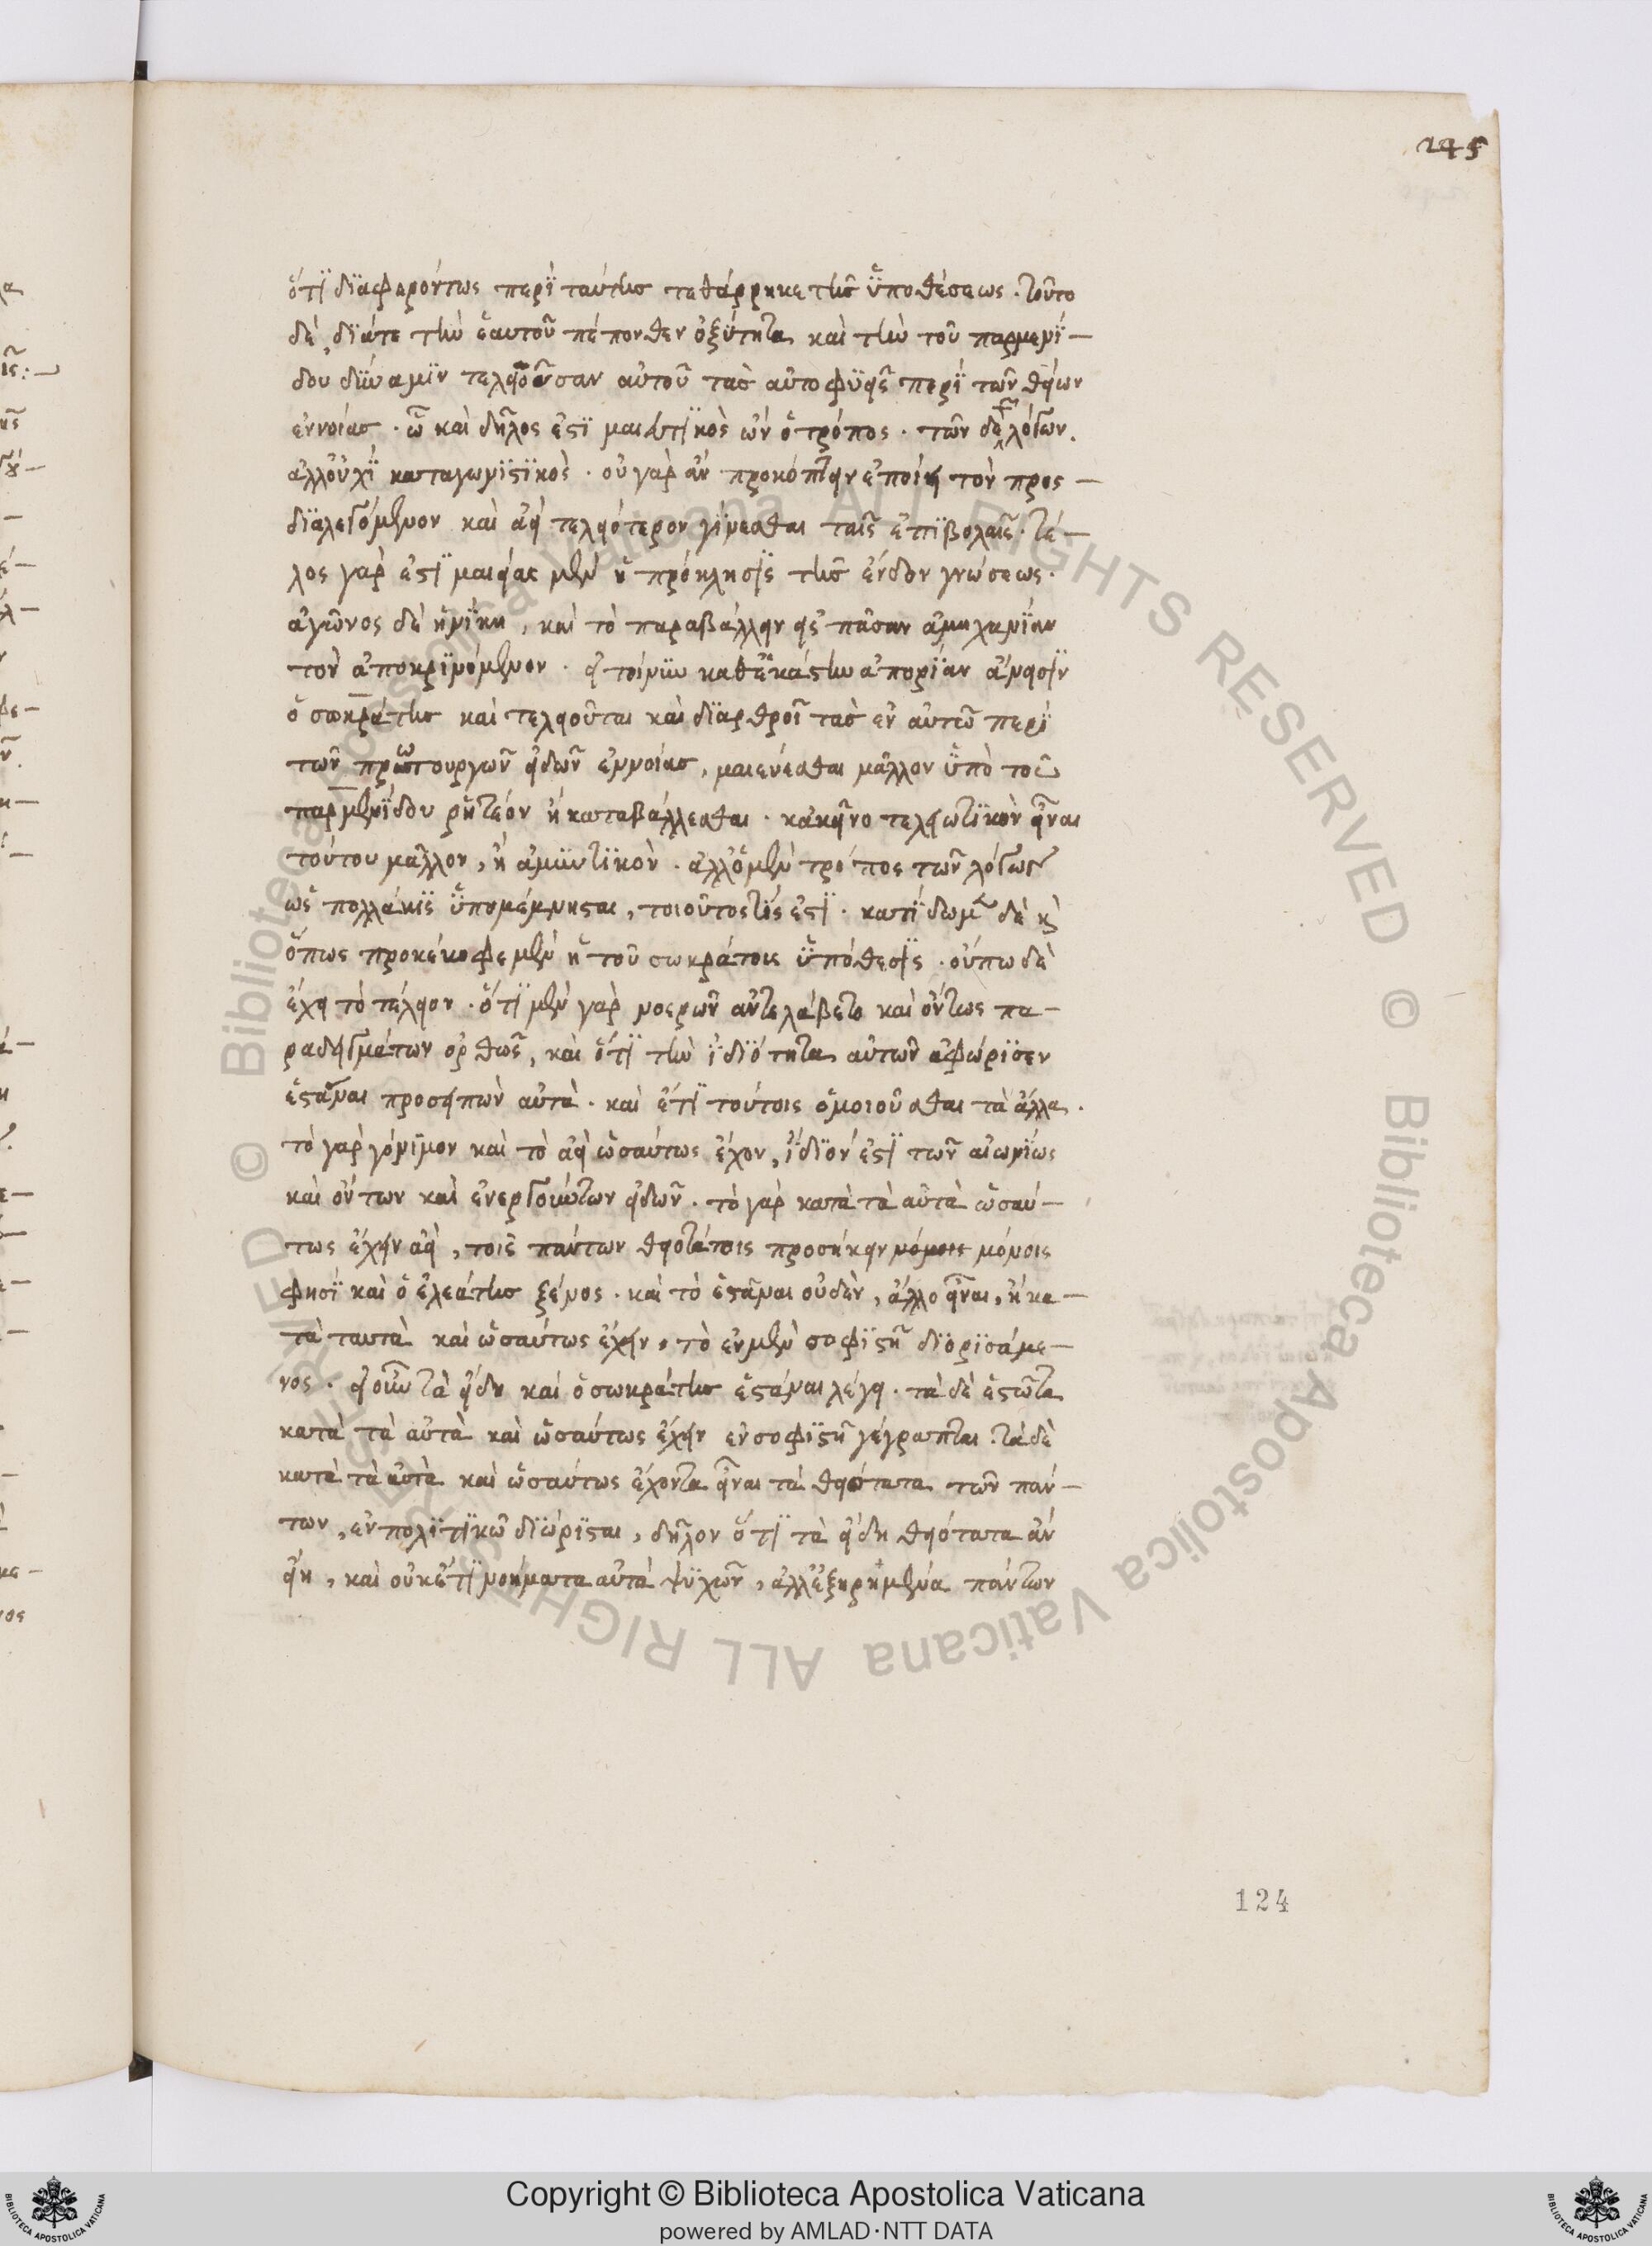 145
ὅτι διαφερόντως περὶ ταύτης τεθάρρηκε τῆς ὑποθέσεως. τοῦτο
δὲ, διάτε τὴν ἑαυτοῦ πέπονθεν ὀξύτητα καὶ τὴν τοῦ παρμενί-
δου δύναμιν τελειοῦσαν αὐτοῦ τὰς αὐτοφυεῖς περὶ τῶν θείων
ἐννοίας. ὧ καὶ δῆλος ἐστὶ μαιευτικὸς ὢν ὁ τρόπος. τῶν δε λόγων.
ἀλλοὐχὶ καταγωνιστικὸς. οὐ γὰρ ἂν προκόπτειν ἐποίει τὸν προς-
διαλεγόμενον καὶ ἀεὶ τελειότερον γίνεσθαι ταῖς ἐπιβολαῖς. τέ-
λος γάρ ἐστι μαιείας μὲν ἡ πρόκλησις τῆς ἔνδον γνώσεως.
ἀγῶνος δὲ ἡ νίκη, καὶ τὸ παραβάλλειν εἰς πᾶσαν ἀμηχανίαν
τὸν ἀποκρινόμενον. εἰ τοίνυν καθ' ἑκάστην ἀπορίαν ἄνεισιν
ὁ σωκράτης καὶ τελειοῦται καὶ διαρθροῖ τὰς ἐν αὐτῶ περὶ
τῶν πρωτουργῶν εἰδῶν ἐννοίας, μαιεύεσθαι μᾶλλον ὑπὸ τοῦ
παρμενίδου ῥητέον ἢ καταβάλλεσθαι. κἀκεῖνο τελειωτικὸν εἶναι
τούτου μᾶλλον, ἢ ἀμυντικὸν. ἀλλ' ὁ μὲν τρόπος τῶν λόγων
ὡς πολλάκις ὑπομέμνησται, τοιοῦτος τίς ἐστι. κατίδωμεν δὲ κὶ
ὅπως προκέκοφε μὲν ἡ τοῦ σωκράτους ὑπόθεσις. οὔπω δὲ
ἔχει τὸ τέλειον. ὅτι μὲν γὰρ νοερῶν ἀντελάβετο καὶ ὄντως πα-
ραδειγμάτων ὀρθῶς, καὶ ὅτι τὴν ἰδιότητα αὐτῶν ἀφώρισεν
ἑστάναι προσειπὼν αὐτὰ. καὶ ἔτι τούτοις ὁμοιοῦσθαι τὰ ἄλλα.
τὸ γὰρ γόνιμον καὶ τὸ ἀεὶ ὡσαύτως ἔχον, ἴδιόν ἐστι τῶν αἰωνίως
καὶ ὄντων καὶ ἐνεργούντων εἰδῶν. τὸ γὰρ κατὰ τὰ αὐτὰ ὡσαύ-
τως ἔχειν ἀεὶ, τοῖς πάντων θειοτάτοις προσήκειν μόνοις μόνοις
φησὶ καὶ ὁ ἐλεάτης ξένος. καὶ τὸ ἑστᾶναι οὐδὲν, ἄλλο εἶναι, ἢ κα-
τὰ ταυτὰ καὶ ὡσαύτως ἔχειν, τὸ ἐν μὲν σοφιστῆ διορισάμε-
νος. εἰ οὖν τὰ εἴδη καὶ ὁ σωκράτης ἑστάναι λέγει. τὰ δὲ ἑστῶτα
κατὰ τὰ αὐτὰ καὶ ὡσαύτως ἔχειν ἐν σοφιστῆ γέγραπται. τὰ δὲ
κατὰ τὰ αὐτὰ καὶ ὡσαύτως ἔχοντα εἶναι τὰ θειότατα τῶν πάν-
των, ἐν πολιτικῶ διώρισται, δῆλον ὅτι τὰ εἴδη θειότατα ἂν
εἴη, καὶ οὐκέτι νοήματα αὐτὰ ψυχῶν, ἀλλ' ἐξηρημένα πάντων
124
Copyright © Biblioteca Apostolica Vaticana
powered by AMLAD·NTT DATA